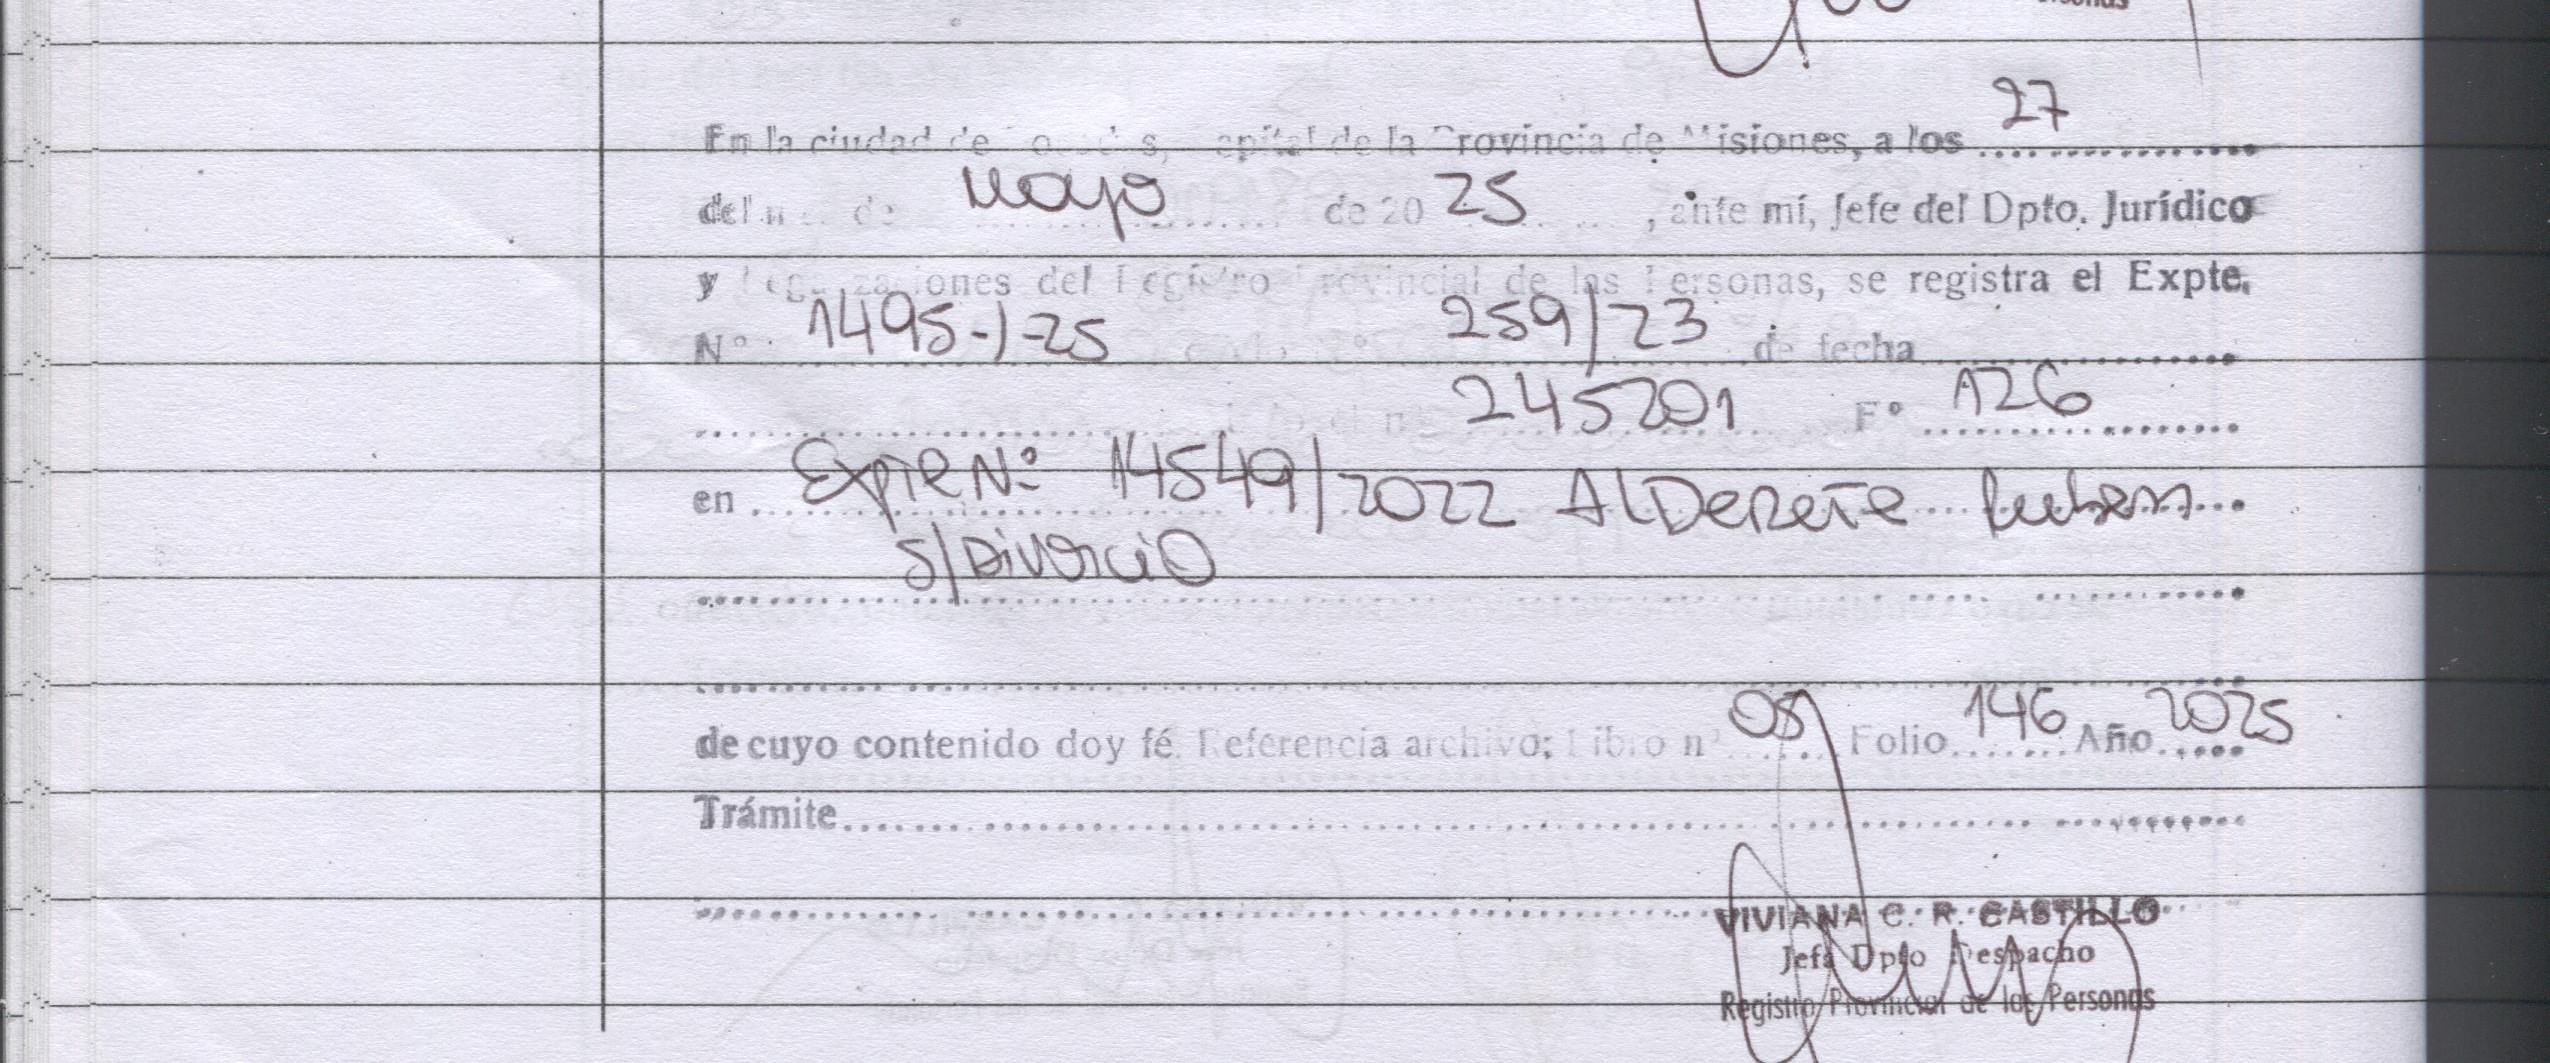 ersonas
27
En la ciudad de Posadas, Capital de la Provincia de Misiones, a los
del mes de mayo de 20 25 , ante mí, Jefe del Dpto. Jurídico
y Legalizaciones del Registro Provincial de las Personas, se registra el Expte.
N° 1495-J-25 259/23 de fecha
245201 F° 126
en Expte N° 14549/2022 Alderete Ruben
s/Divorcio
de cuyo contenido doy fé. Referencia archivo; Libro n° 05 Folio 146 Año 2025
Trámite
VIVIANA C. R. CASTILLO
Jefa Dpto Despacho
Registro Provincial de las Personas